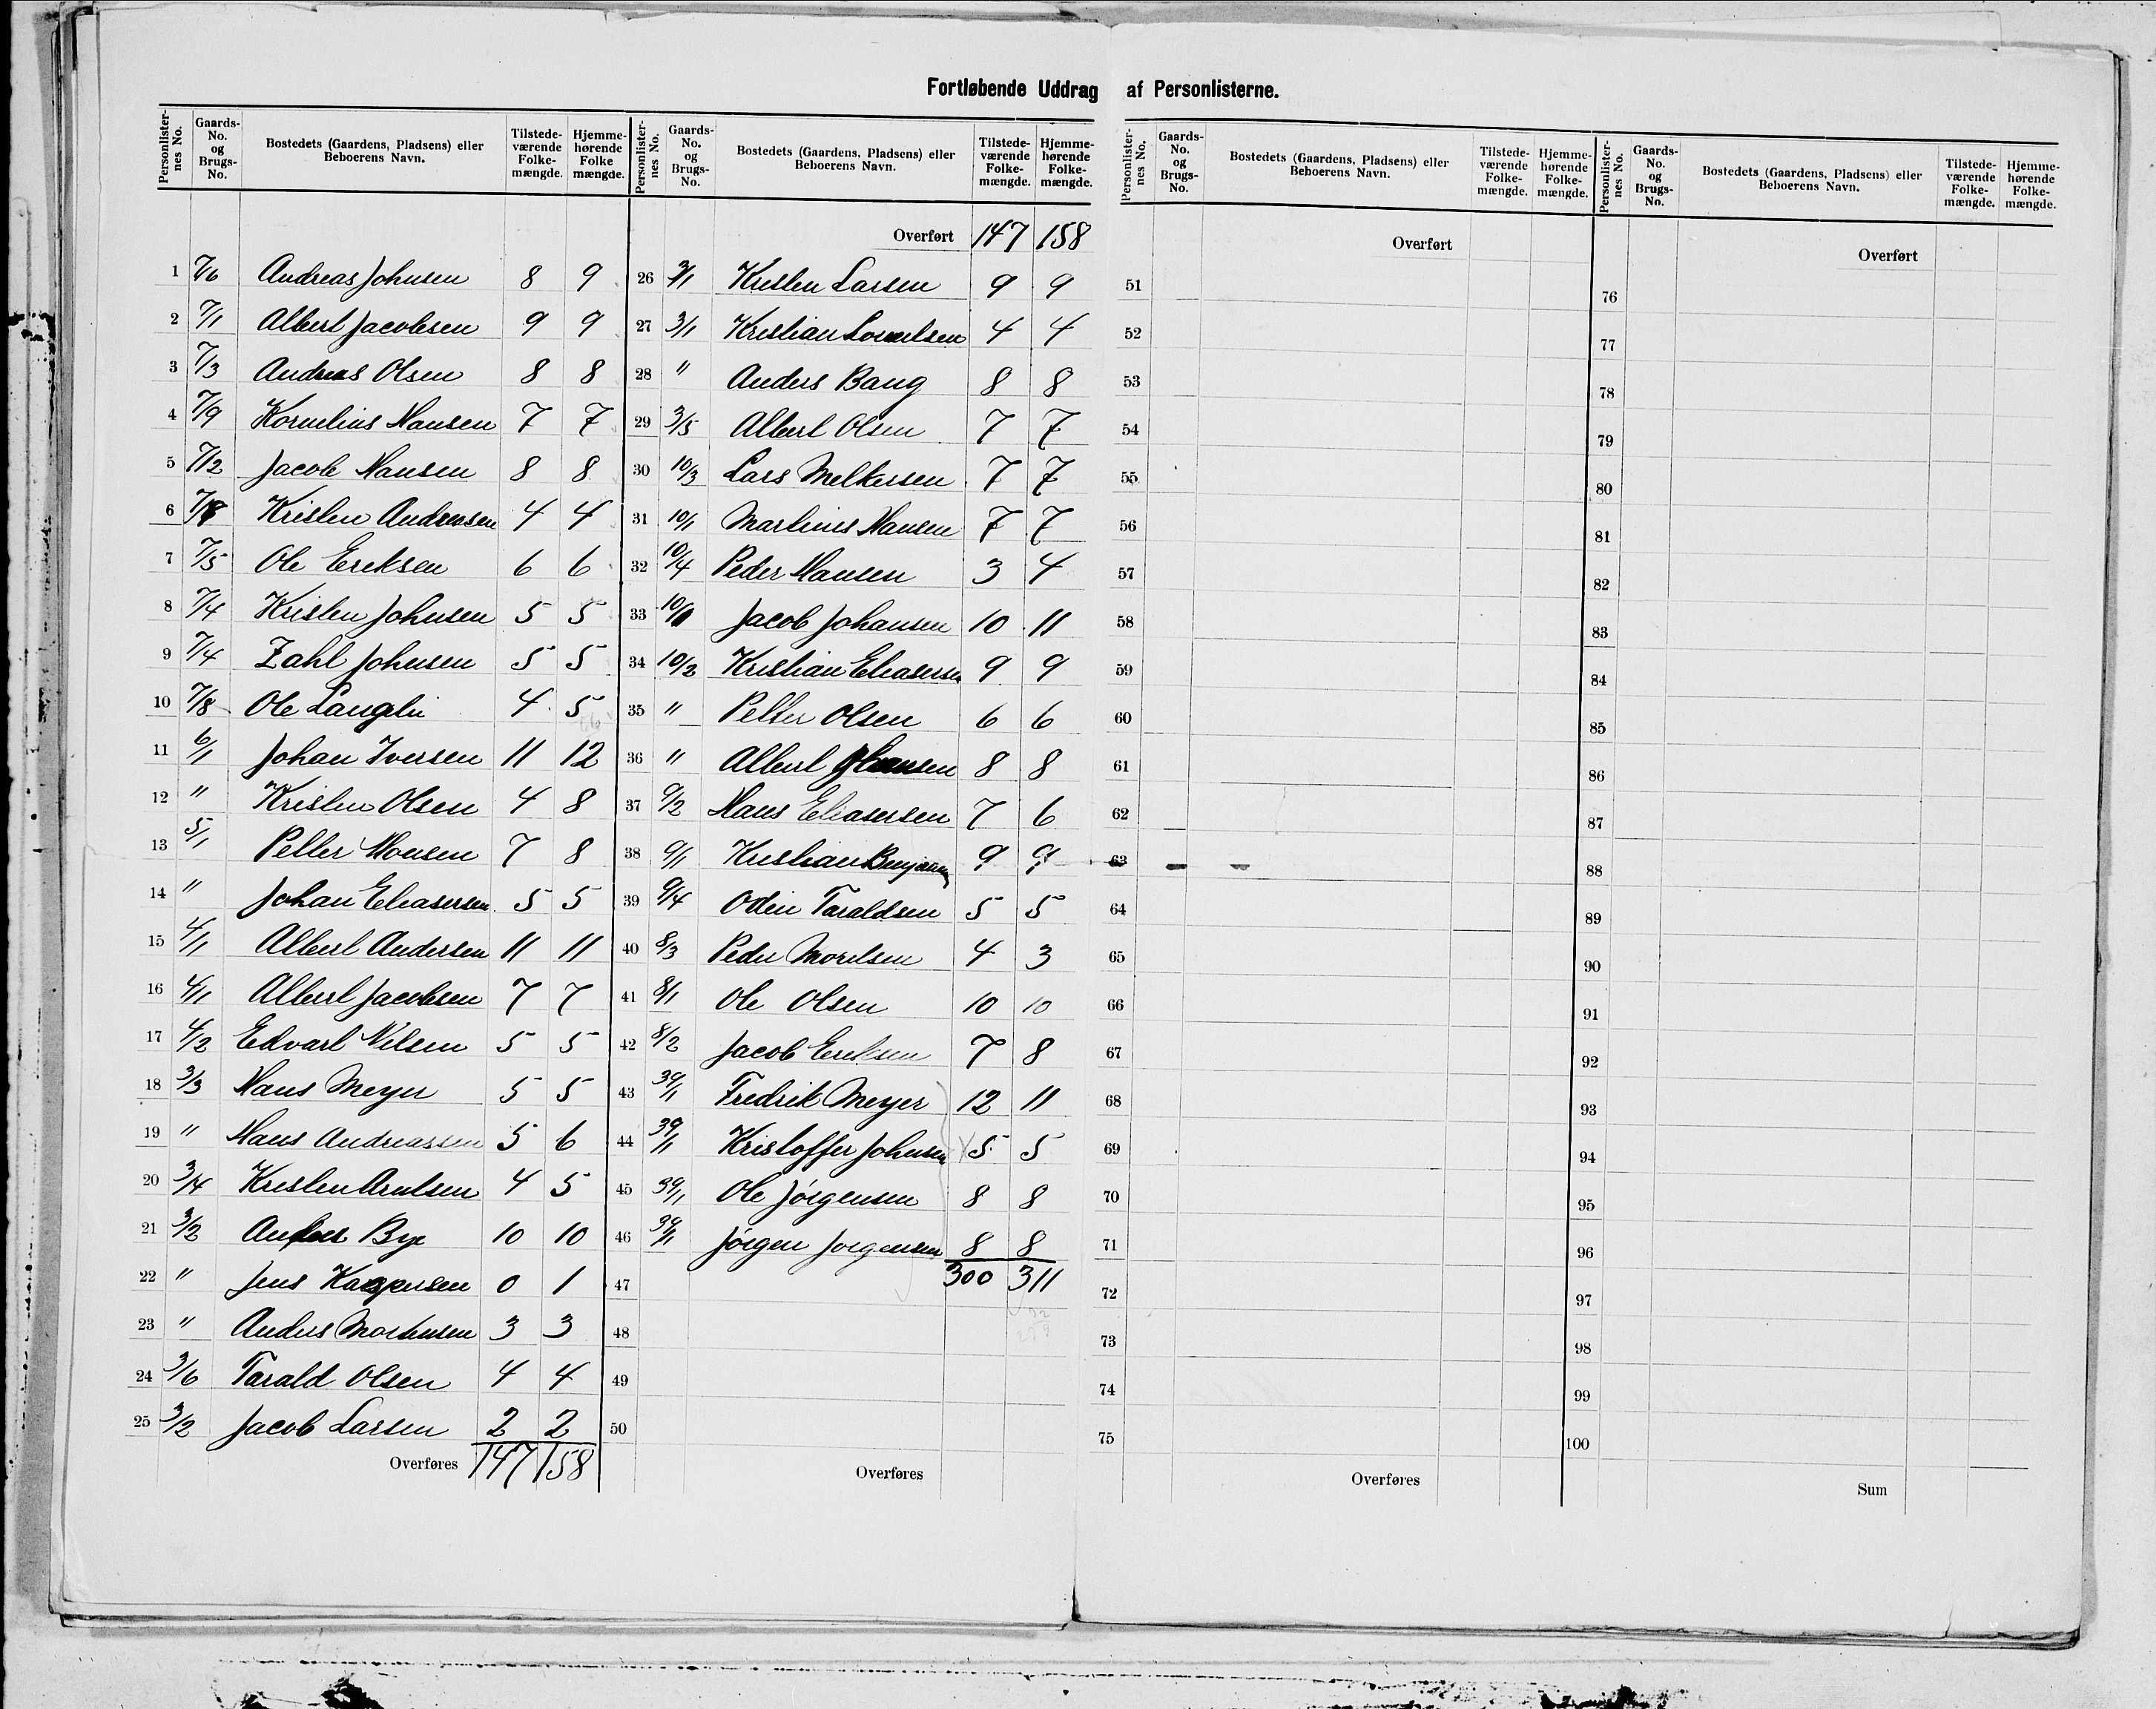 Fortløbende Uddrag af Personlisterne.
Personlisternes No. Gaards-No. og Brugs-No. Bostedets (Gaardens, Pladsens) eller Beboerens Navn. Tilstedeværende Folkemængde. Hjemmehørende Folkemængde.
1 7/16 Andreas Johnsen 8 9
2 7/1 Albert Jacobsen 9 9
3 7/3 Andreas Olsen 8 8
4 7/9 Kornelius Hansen 7 7
5 7/12 Jacob Hansen 8 8
6 Kristen Andreasen 4 4
7 7/5 Ole Ereksen 6 6
8 7/4 Kristen Johnsen 5 5
9 7/4 Zahl Johnsen 5 5
10 7/8 Ole Langli 4 5
11 6/1 Johan Iversen 11 12
12 " Kristen Olsen 4 8
13 5/1 Petter Monsen 7 8
14 " Johan Eleasersen 5 5
15 4/1 Albert Andersen 11 11
16 4/1 Albert Jacobsen 7 7
17 4/2 Edvart Nilsen 5 5
18 3/3 Hans Meyer 5 5
19 " Hans Andreassen 5 6
20 3/4 Kresten Arntsen 4 5
21 3/2 Anders Bye 10 10
22 " Jens Kaspersen 0 1
23 " Anders Mortensen 3 3
24 3/6 Tarald Olsen 4 4
25 3/2 Jacob Larsen 2 2
Overføres 147 158
Personlisternes No. Gaards-No. og Brugs-No. Bostedets (Gaardens, Pladsens) eller Beboerens Navn. Tilstedeværende Folkemængde. Hjemmehørende Folkemængde.
Overført 147 158
26 3/1 Kresten Larsen 9 9
27 3/1 Kristian 4 4
28 " Anders Bang 8 8
29 3/5 Albert Olsen 7 7
30 10/3 Lars Melkersen 7 7
31 10/1 Martinus Hansen 7 7
32 10/4 Peder Hansen 3 4
33 Jacob Johansen 10 11
34 10/2 Kristian Eleasersen 9 9
35 " Petter Olsen 6 6
36 " Albert 8 8
37 9/2 Hans Eleasersen 7 6
38 9/1 Kristian Benjamin 9 9
39 9/4 Odin Taraldsen 5 5
40 8/3 Peder 4 3
41 8/1 Ole Olsen 10 10
42 8/2 Jacob Ereksen 7 8
43 39/1 Fredrik Meyer 12 11
44 39/1 Kristoffer Johnsen 5 5
45 39/1 Ole Jørgensen 8 8
46 39/1 Jørgen Jørgensen 8 8
47 300 311
48
49
50
Overføres
Personlisternes No. Gaards-No. og Brugs-No. Bostedets (Gaardens, Pladsens) eller Beboerens Navn. Tilstedeværende Folkemængde. Hjemmehørende Folkemængde.
Overført
51
52
53
54
55
56
57
58
59
60
61
62
63
64
65
66
67
68
69
70
71
72
73
74
75
Overføres
Personlisternes No. Gaards-No. og Brugs-No. Bostedets (Gaardens, Pladsens) eller Beboerens Navn. Tilstedeværende Folkemængde. Hjemmehørende Folkemængde.
Overført
76
77
78
79
80
81
82
83
84
85
86
87
88
89
90
91
92
93
94
95
96
97
98
99
100
Sum